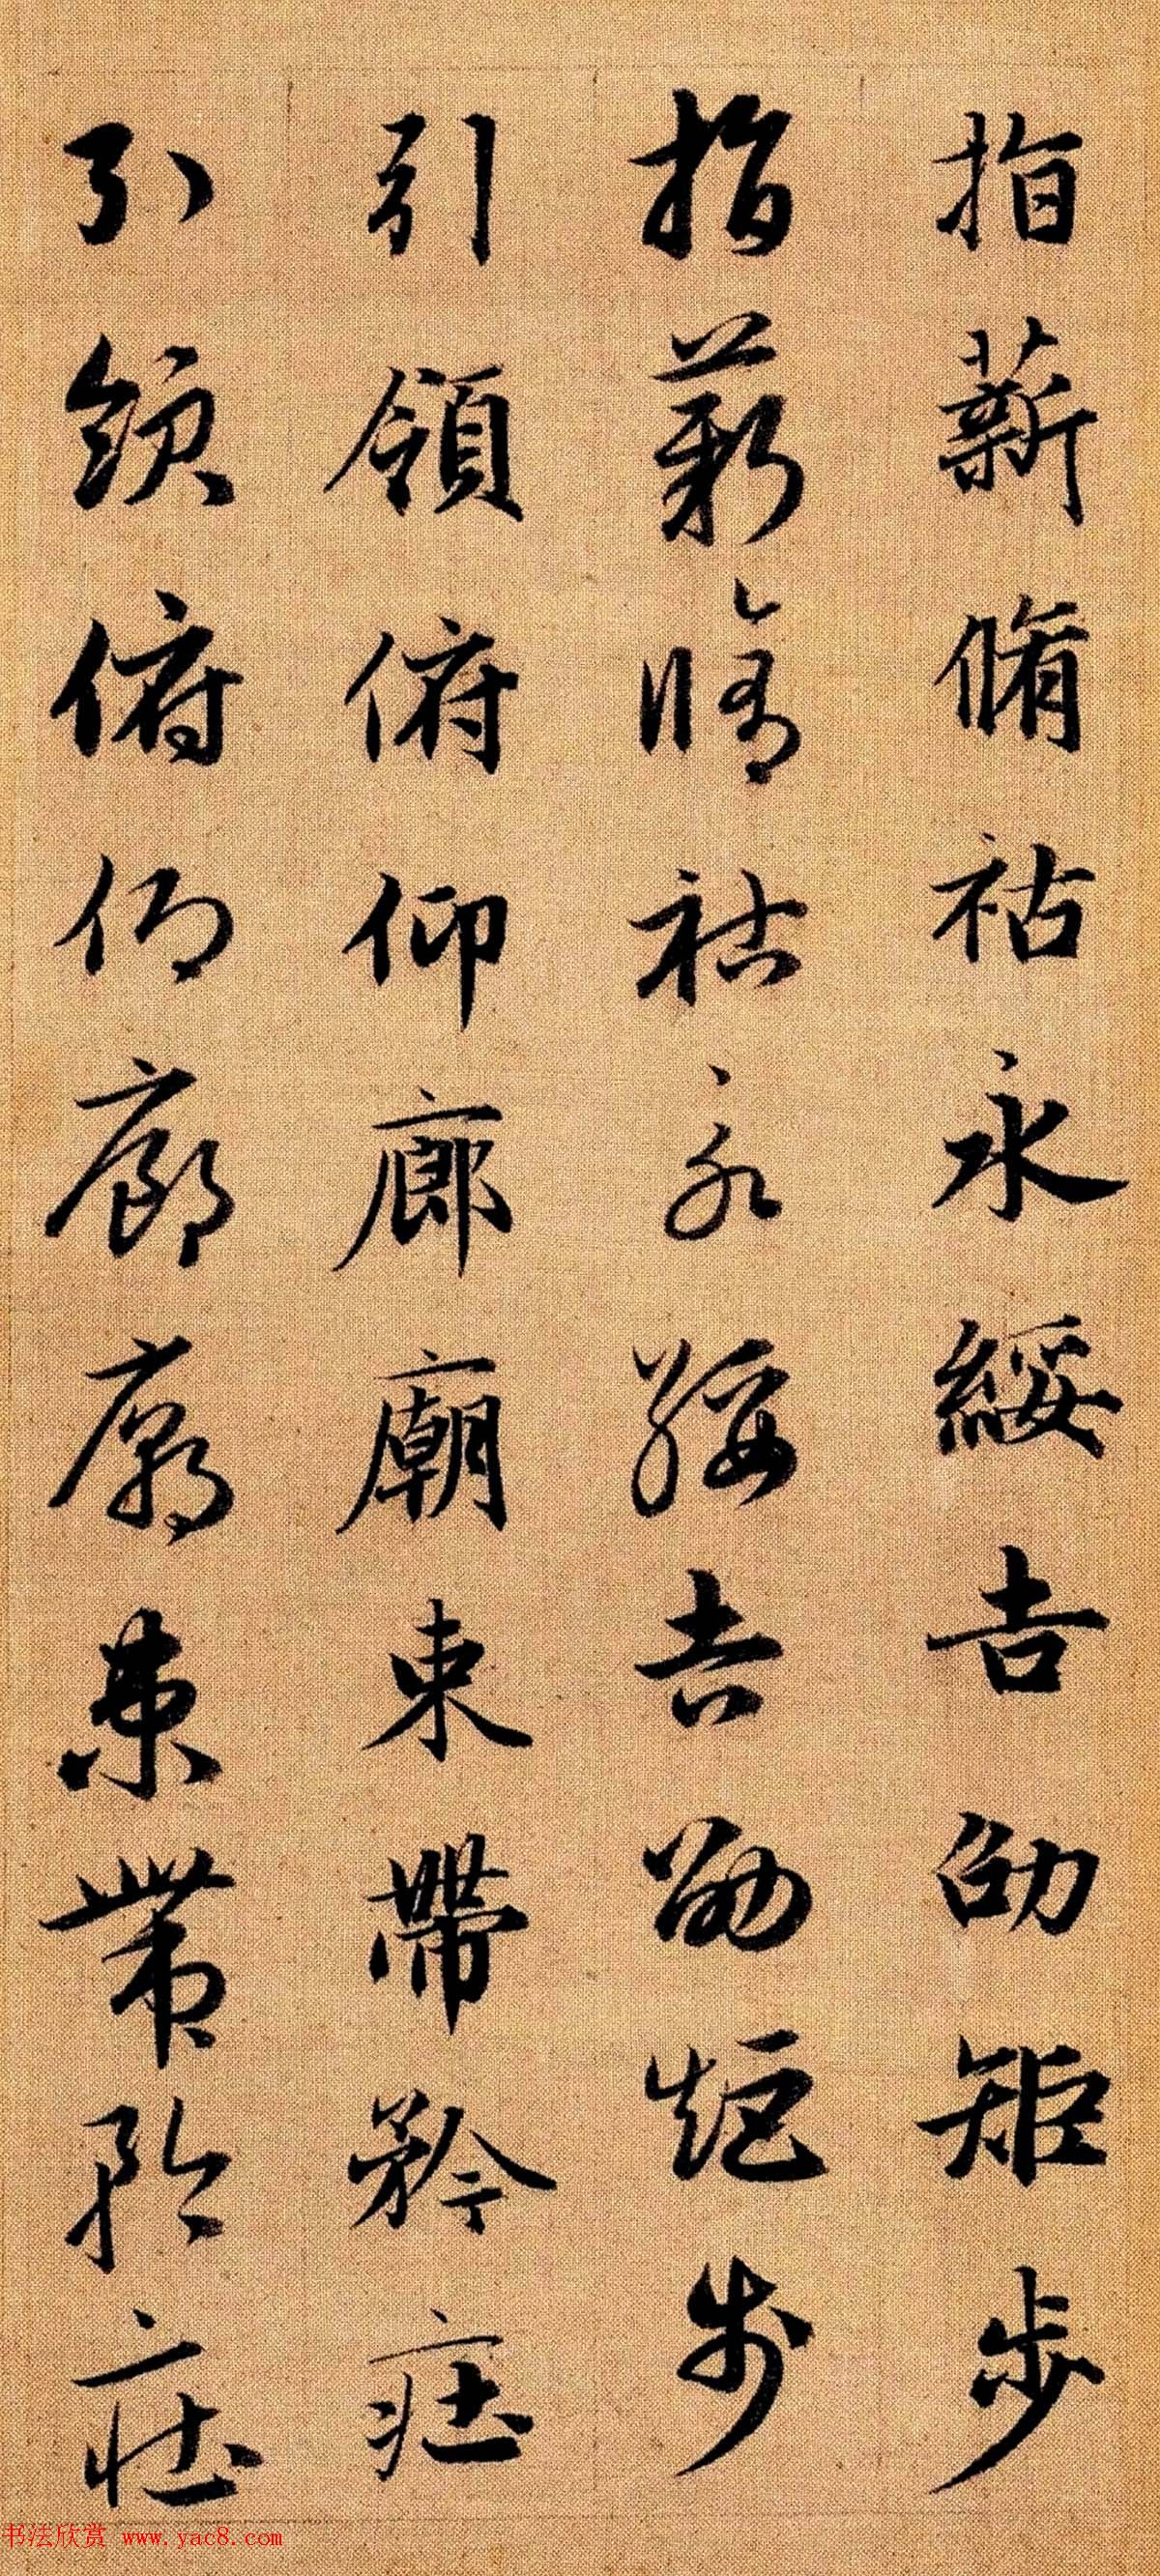 指薪脩祜永綏吉劭矩步
指薪脩祜永綏吉劭矩步
引領俯仰廊廟束帶矜莊
引領俯仰廊廟束帶矜莊
书法欣赏 www.yac8.com